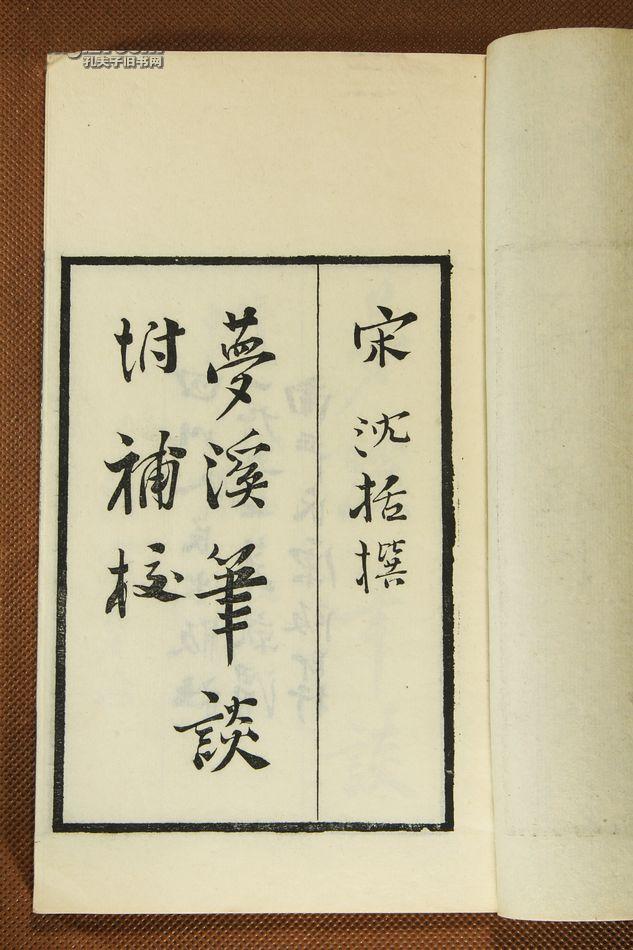 孔夫子旧书网
宋 沈括撰
夢溪筆談
坿補校